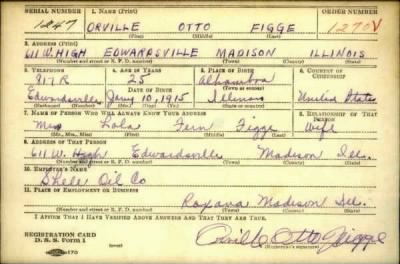 SERIAL NUMBER 1. NAME (Print) ORDER NUMBER
1247 ORVILLE OTTO FIGGE 1270V
(First) (Middle) (Last)
2. ADDRESS (Print)
611 W. HIGH EDWARDSVILLE MADISON ILLINOIS
(Number and street or R. F. D. number) (Town) (County) (State)
3. TELEPHONE 4. AGE IN YEARS 5. PLACE OF BIRTH 6. COUNTRY OF CITIZENSHIP
817R 25 Alhambra
DATE OF BIRTH (Town or county)
Edwardsville Jany 10, 1915 Illinois United States
(Exchange) (Number) (Mo.) (Day) (Yr.) (State or country)
7. NAME OF PERSON WHO WILL ALWAYS KNOW YOUR ADDRESS 8. RELATIONSHIP OF THAT PERSON
Mrs Lola Fern Figge Wife
(Mr., Mrs., Miss) (First) (Middle) (Last)
9. ADDRESS OF THAT PERSON
611 W. High Edwardsville Madison Ill.
(Number and street or R. F. D. number) (Town) (County) (State)
10. EMPLOYER'S NAME
Shell Oil Co
11. PLACE OF EMPLOYMENT OR BUSINESS
Roxana Madison Ill.
(Number and street or R. F. D. number) (Town) (County) (State)
I AFFIRM THAT I HAVE VERIFIED ABOVE ANSWERS AND THAT THEY ARE TRUE.
REGISTRATION CARD
D. S. S. Form 1 Orville Otto Figge
(Registrant's signature)